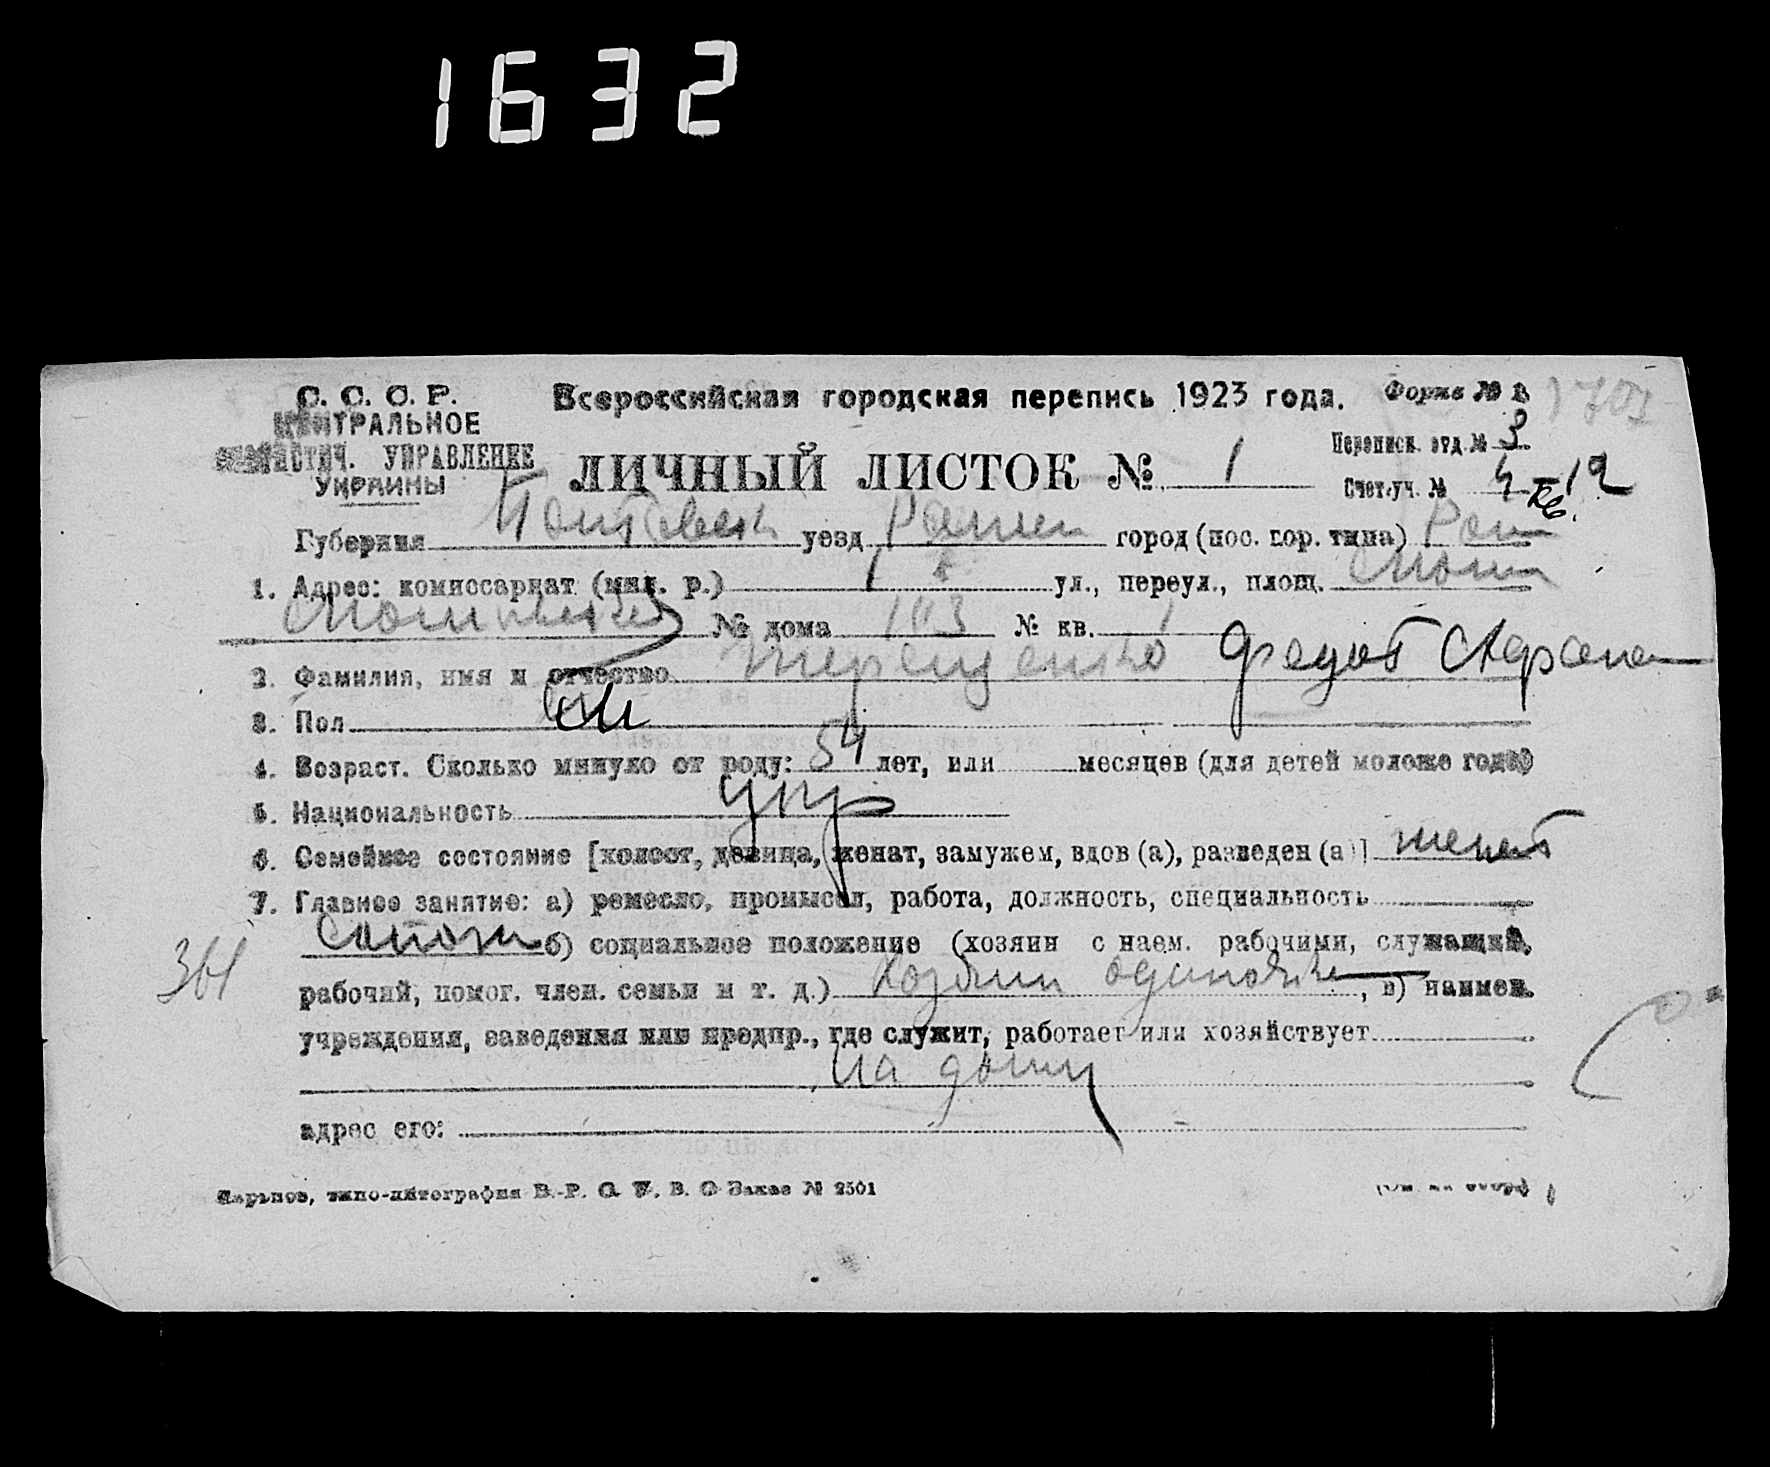 1632
С. С. С. Р. Всероссийская городская перепись 1923 года. Форма №
ЦЕНТРАЛЬНОЕ
СТАТИСТИЧ. УПРАВЛЕНИЕ Переписн. отд. № 3
УКРАИНЫ ЛИЧНЫЙ ЛИСТОК № 1 Счет. уч. № 4
Губерния Полтавск уезд Ромен город (пос. гор. типа) Ром
1. Адрес: комиссариат (мил. р.) 1 ул., переул., площ.
№ дома 103 № кв. 1
2. Фамилия, имя и отчество Терещенко Федот
3. Пол м
4. Возраст. Сколько минуло от роду: 54 лет, или месяцев (для детей моложе года)
5. Национальность укр
6. Семейное состояние [холост, девица, женат, замужем, вдов (а), разведен (а)] женат
7. Главное занятие: а) ремесло, промысел, работа, должность, специальность
Сапожн б) социальное положение (хозяин с наем. рабочими, служащий,
рабочий, помог. член. семьи и т. д.) Хозяин одиночка, в) наимен.
учреждения, заведения или предпр., где служит, работает или хозяйствует
на дому
адрес его:
Харьков, типо-литография В. Заказ № 2501